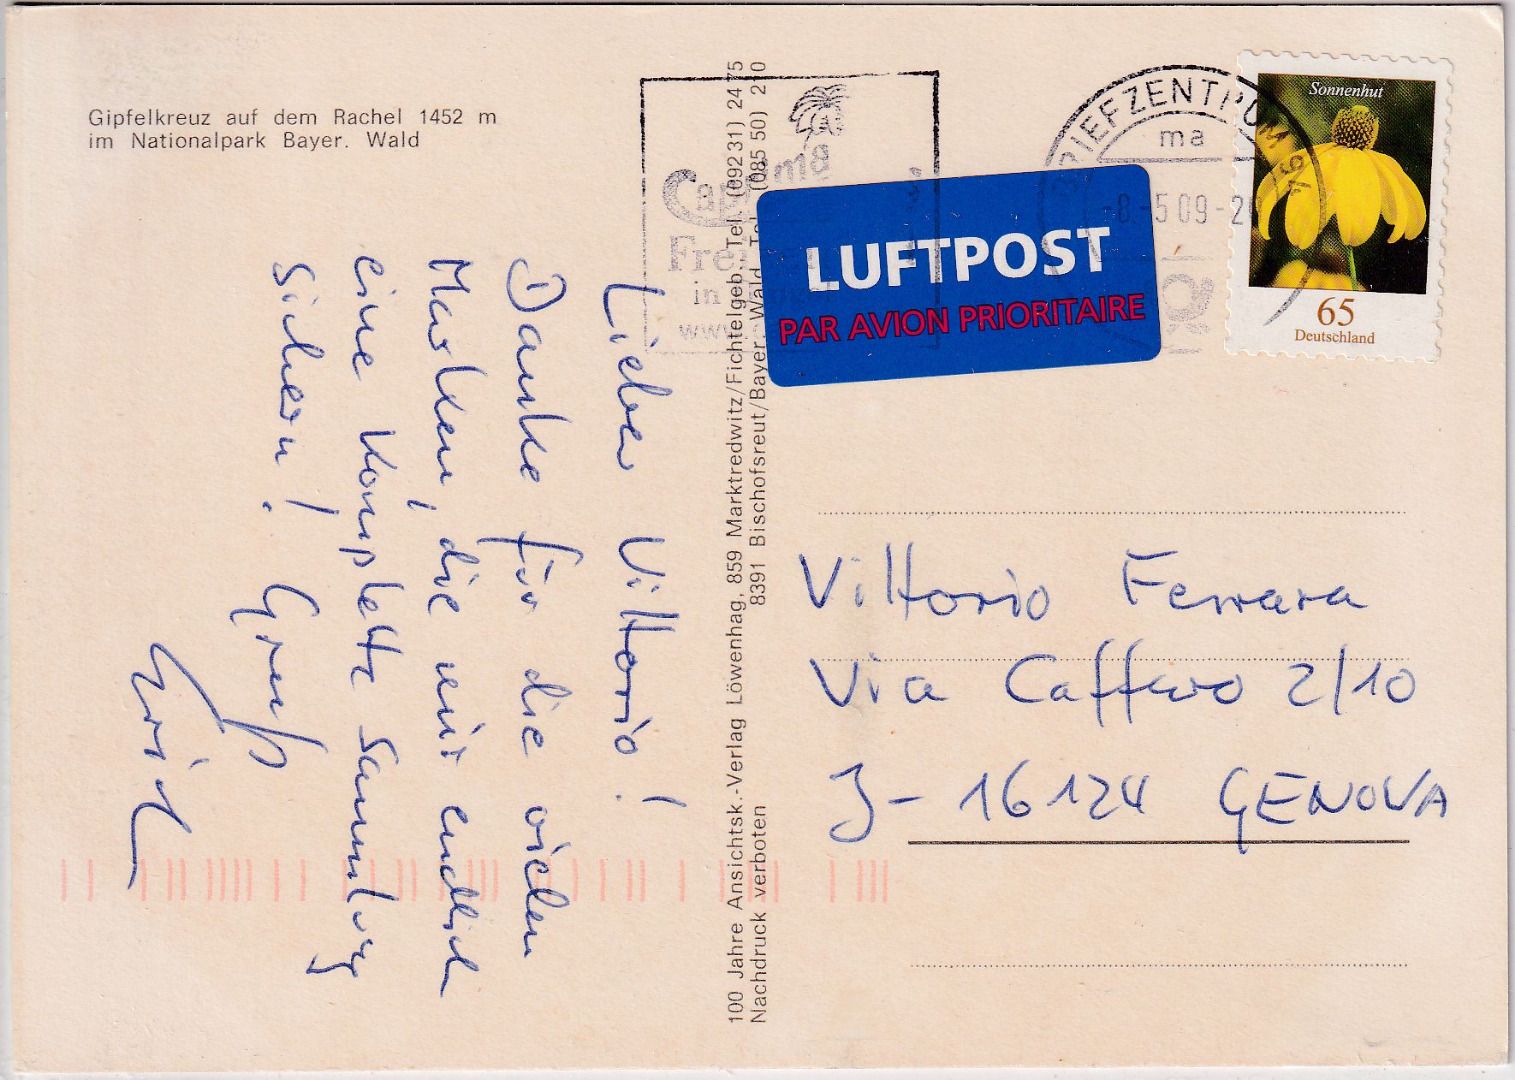 Gipfelkreuz auf dem Rachel 1452 m
im Nationalpark Bayer. Wald
Lieber Vittorio!
Danke für die vielen
Marken, die mir endlich
eine komplette Sammlung
sichern! Gruß
Erich
100 Jahre Ansichtsk.-Verlag Löwenhag, 859 Marktredwitz/Fichtelgeb., Tel. (09231) 2475
8391 Bischofsreut/Bayer. Wald, Tel. (08550) 210
Nachdruck verboten
in
www
BRIEFZENTRUM 94
ma
-8.-5 09-2
LUFTPOST
PAR AVION PRIORITAIRE
Sonnenhut
65
Deutschland
Vittorio Ferrara
Via Caffaro 2/10
I- 16124 GENOVA